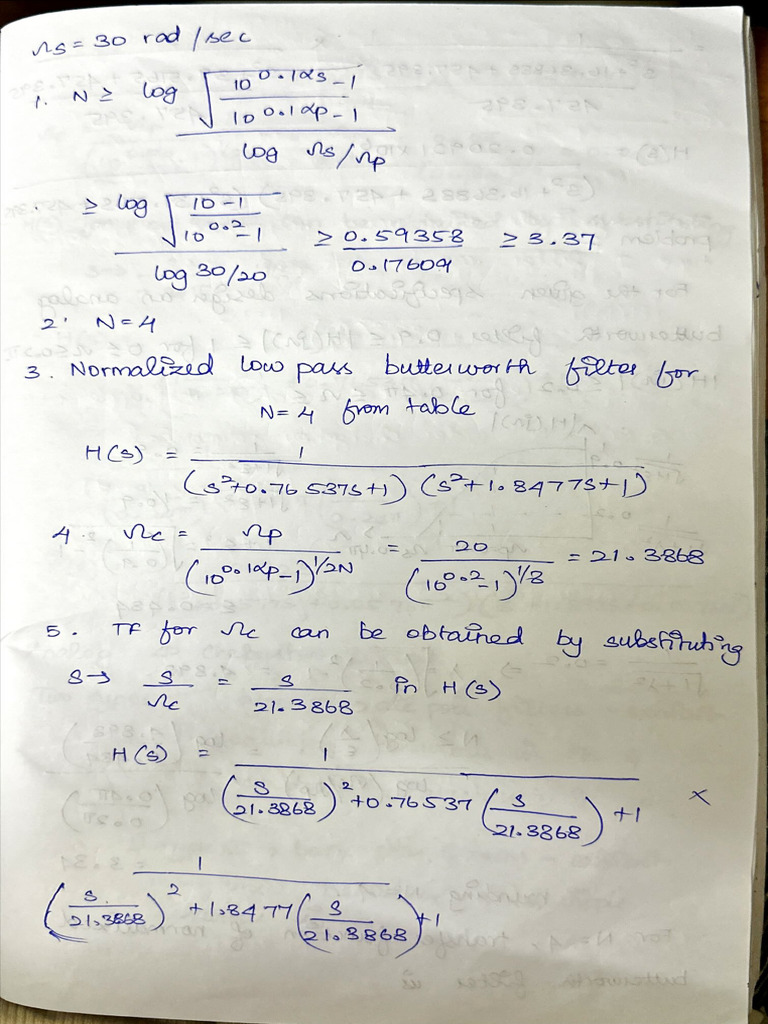 Ωs = 30 rad/sec
1. N ≥ log √((10^0.1αs - 1)/(10^0.1αp - 1)) / log Ωs/Ωp
≥ log √((10-1)/(10^0.2 - 1)) / log 30/20 ≥ 0.59358/0.17609 ≥ 3.37
2. N = 4
3. Normalized low pass butterworth filter for
N = 4 from table
H(s) = 1/((s²+0.76537s+1) (s²+1.8477s+1))
4. Ωc = Ωp/(10^0.1αp - 1)^1/2N = 20/(10^0.2 - 1)^1/8 = 21.3868
5. TF for Ωc can be obtained by substituting
s → s/Ωc = s/21.3868 in H(s)
H(s) = 1/((s/21.3868)² + 0.76537 (s/21.3868) + 1) ×
1/((s/21.3868)² + 1.8477 (s/21.3868) + 1